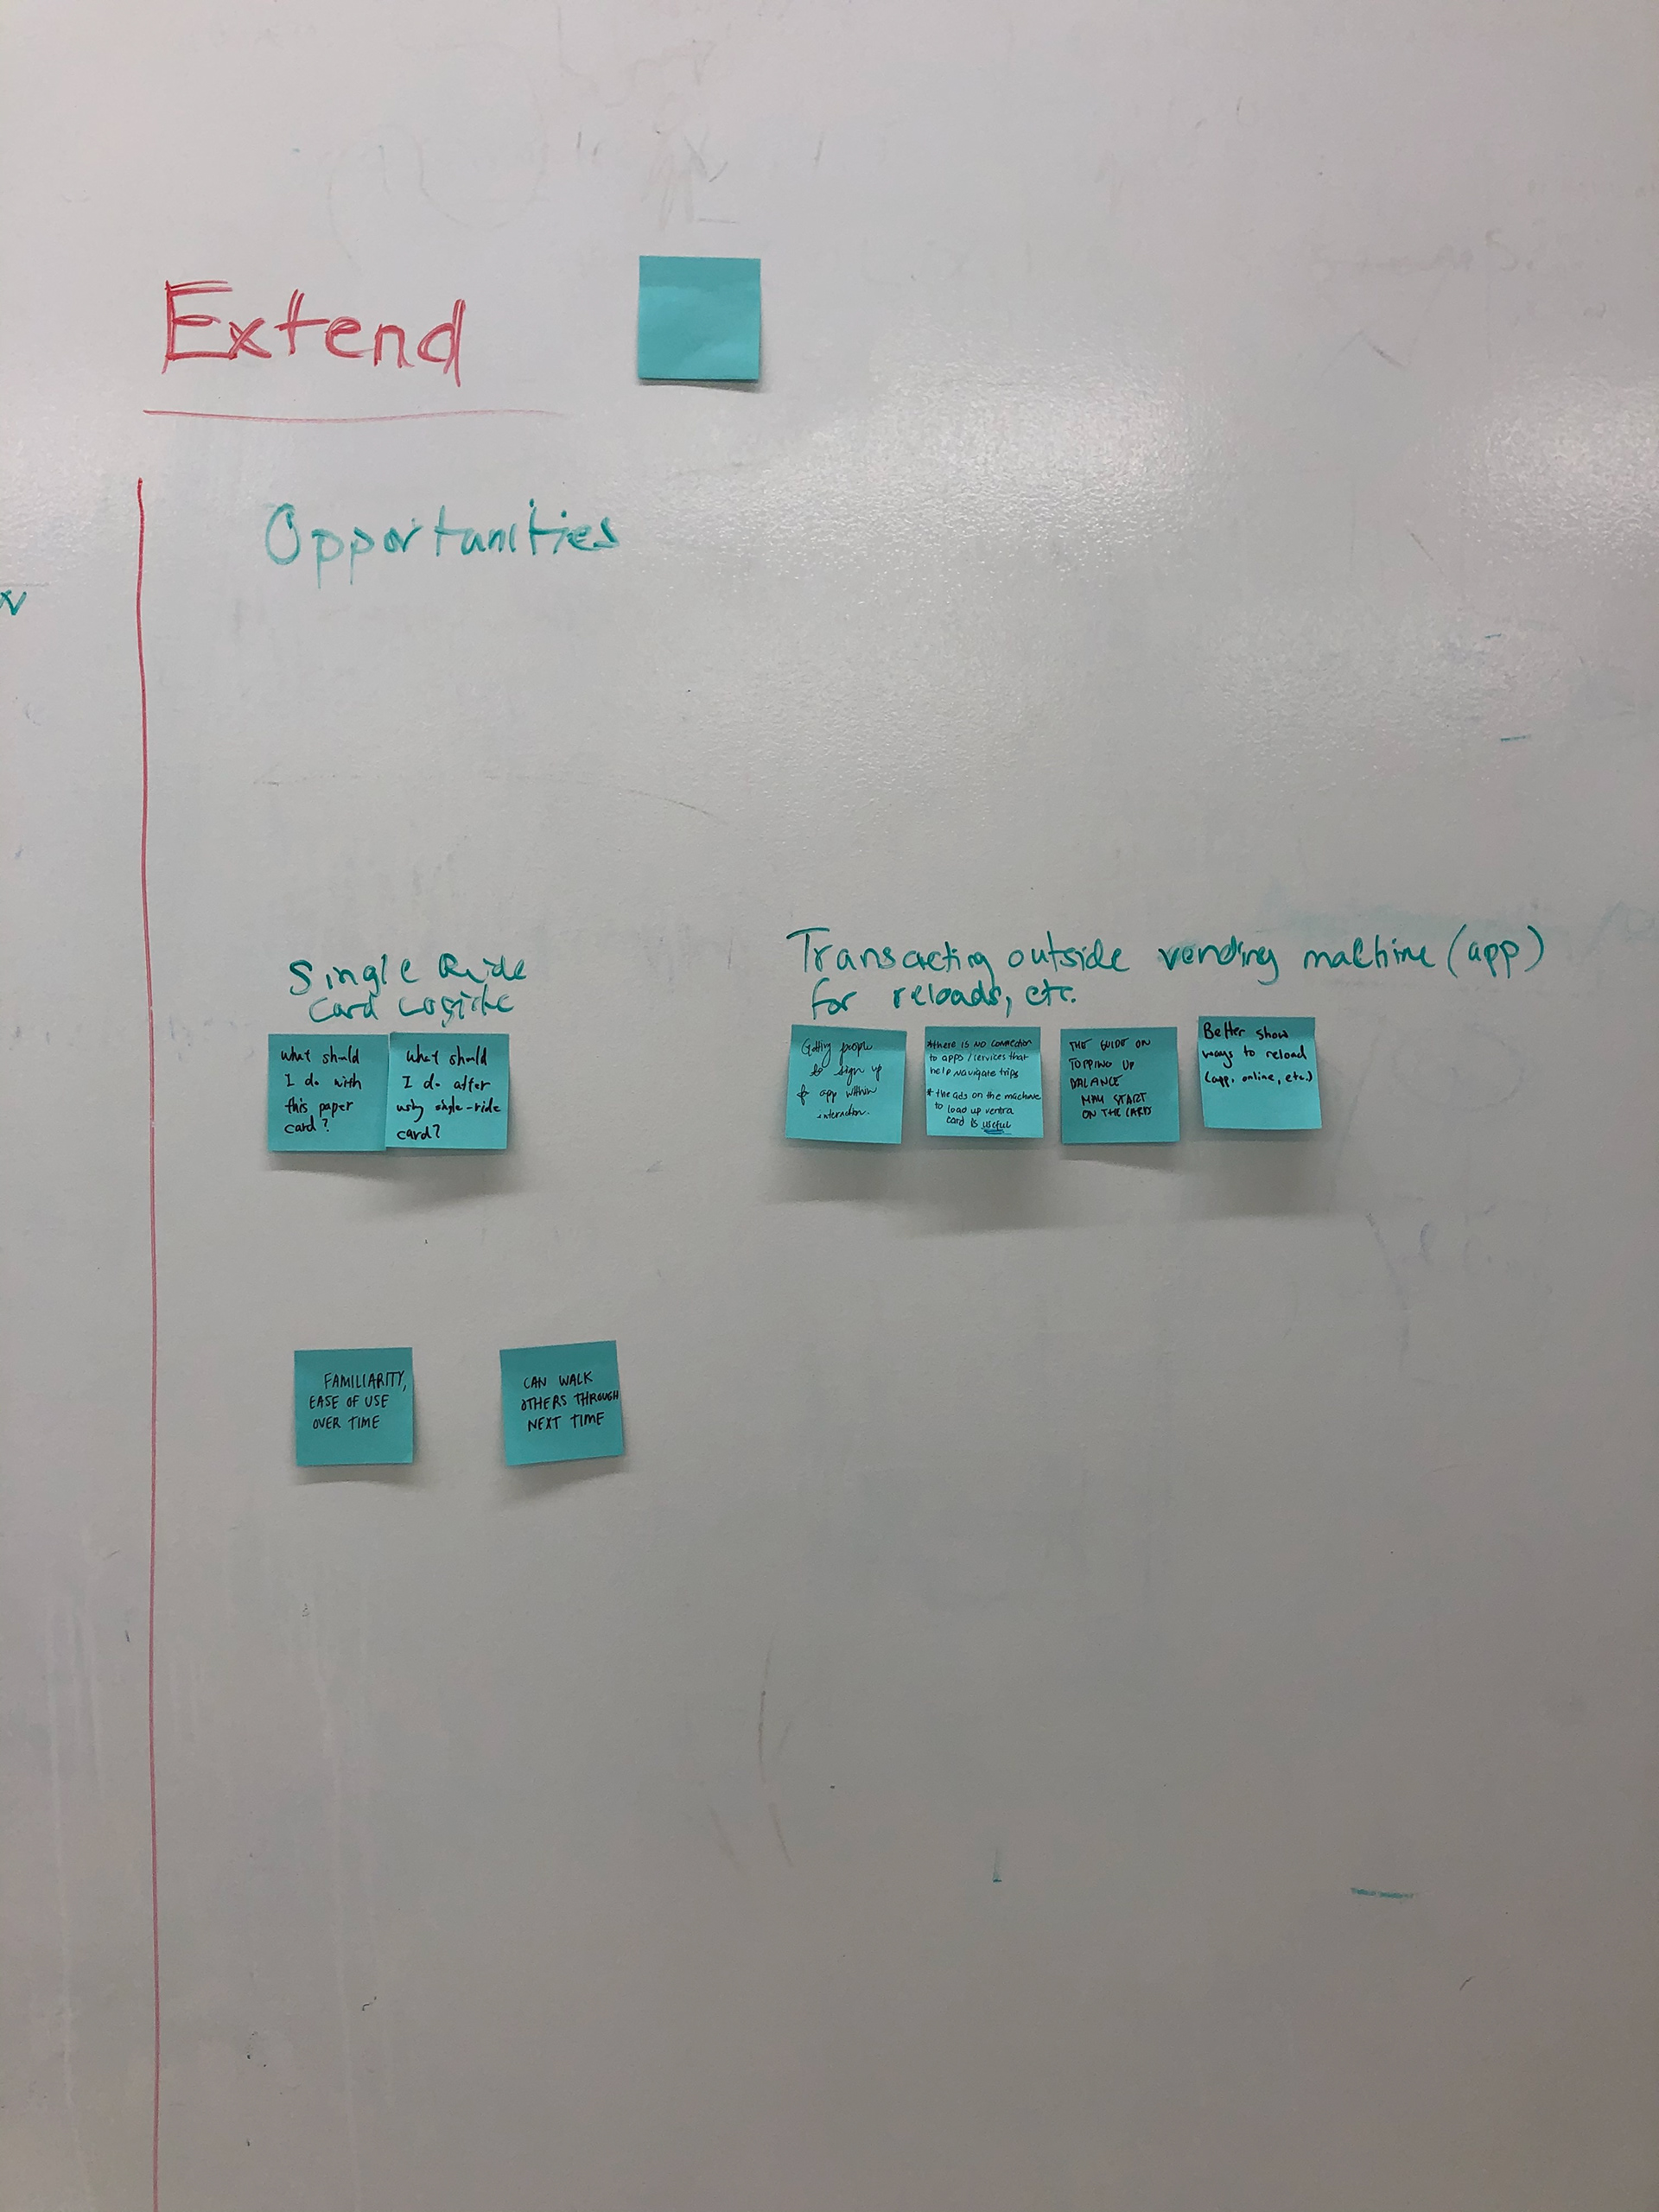 Extend
Opportunities
Single Ride
Card
Transacting outside vending machine (app)
for reloads, etc.
What should
I do with
this paper
card?
What should
I do after
using single-ride
card?
Getting people
to sign up
for app within
interaction.
*there is no connection
to apps/services that
help navigate trips
* the ads on the machine
to load up ventra
card is useful
THE GUIDE ON
TOPPING UP
BALANCE
MAY START
ON THE CARD
Better show
ways to reload
(app, online, etc.)
FAMILIARITY,
EASE OF USE
OVER TIME
CAN WALK
OTHERS THROUGH
NEXT TIME